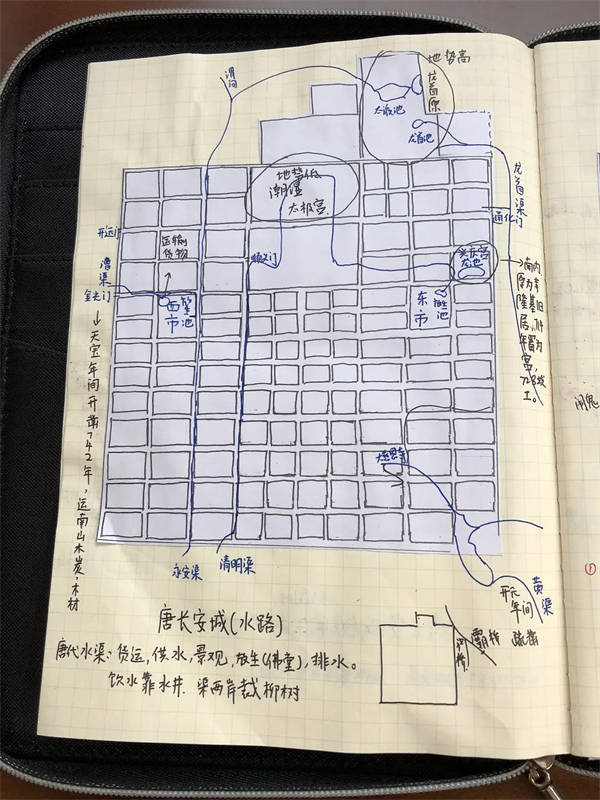 地势高
龙首原
渭河
太液池
龙首池
龙首渠
通化门
地势低
潮湿
太极宫
开远门
运输
货物
顺义门
兴庆宫
龙池
漕渠
金光门
西市
放生池
东市
放生池
→南内
原为李
隆基旧
居,714
年置为
宫,
728竣
工。
→天宝年间开凿742年,运南山木炭,木材
大慈恩寺
闹鬼
永安渠
清明渠
黄渠
开元
年间
疏凿
唐长安城(水路)
唐代水渠:货运,供水,景观,放生(佛堂),排水。
饮水靠水井. 渠两岸栽柳树
浐桥
灞桥
①